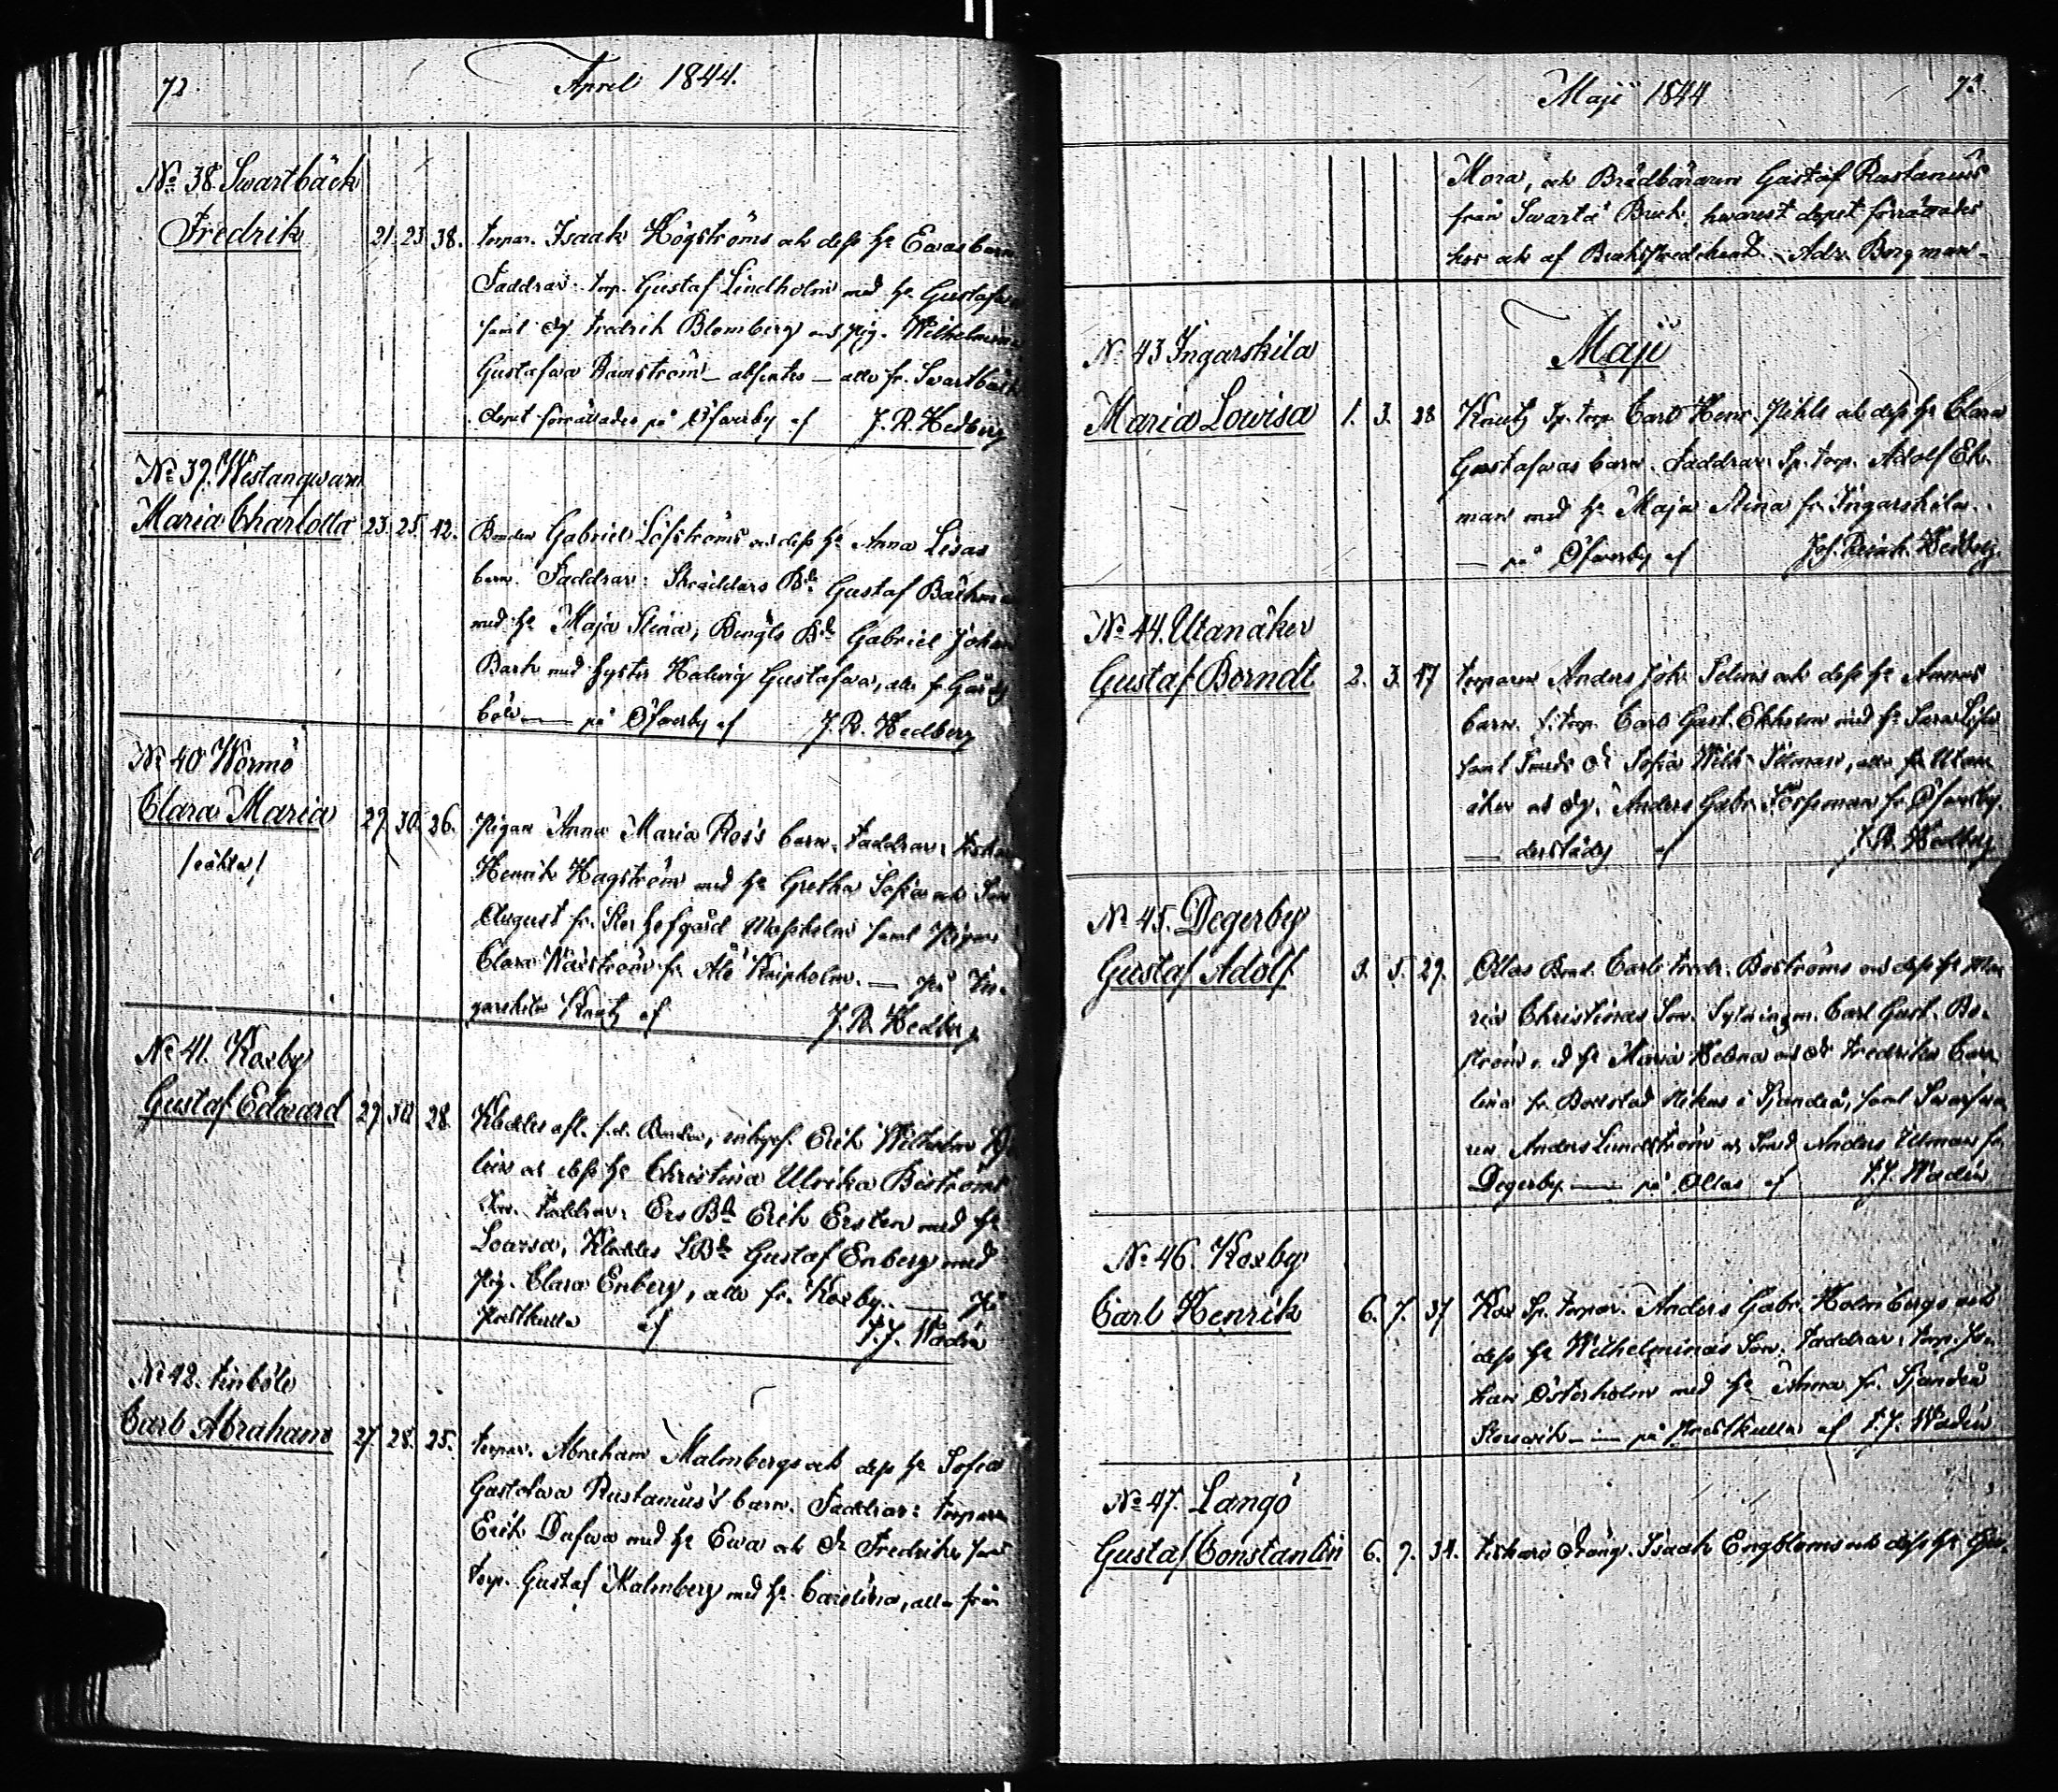 72
April 1844.
No 38 Swartbäck
Fredrik 21. 23. 38. torpar. Isaak Högströms och dess hu Ewas barn
Faddrar: torp. Gustaf Lindholm med hu Gustafwa
samt dg Fredrik Blomberg och pig. Wilhelmina
Gustafwa Ramström absentes — alla fr. Swartbäck
dopet förrättades på Öfwerby af J. R. Hedberg
No 39. Westanqwarn
Maria Charlotta 23. 25. 42. Bonden Gabriel Löfströms och dess hu Anna Lisas
barn. Faddrar: Skräddars Bd Gustaf Bäckman
med hu Maja Stina, Bengts Bd Gabriel Johan
Barck med syster Hedwig Gustafwa, alla fr
böle — på Öfwerby af J. R. Hedberg
No 40 Wormö
Clara Maria 29. 30. 26. Pigan Anna Maria Ros's barn. Faddrar:
/oäkta/
Henrik Hagström med hu Gretha Sofia och Son
August fr. samt Pigan
Clara fr. — På In-
garskila Knuts af J. R. Hedberg
No 41. Koxby
Gustaf Edward 29. 30. 28. Erik Wilhelm
och dess hu Christina Ulrika Boströms
Son. Faddrar: Ers Bd Erik Ersten med hu
Lowisa, Gustaf Enberg med
pig. Clara Enberg, alla fr. Koxby. — På
Prestkulla af F. J. Wadén
No 42. Finböle
Carl Abraham 27. 28. 25. torpar. Abraham Malmbergs och dess hu Sofia
Gustafwa Rustanius's barn. Faddrar: torparen
Erik Dufwa med hu Ewa och dr Fredrika samt
torp. Gustaf Malmberg med hu Carolina, alla från
Maji 1844
73.
Mora, och Brädbäraren Gustaf Rustanius
från Swartå Bruk, hwarest dopet förrättades
hos och af Adr. Borgman
Maji
No 43 Ingarskila
Maria Lowisa 1. 3. 28 Knuts Sp. torp. Carl Henr. Pihls och dess hu Clara
Gustafwas barn. Faddrar: Sp. torp. Adolf Ek-
man med hu Maja Stina fr. Ingarskila.
— på Öfwerby af Jos. Reinh. Hedberg.
No 44. Utanåker
Gustaf Berndt 2. 3. 17 torparen Anders Joh. och dess hu Annas
barn. torp. Carl Gust. Ekholm med hu
samt Smeds dr Sofia Wilh. alla fr Utan-
åker och dg. Anders Gabr. Forssman fr. Öfwerby.
— derstädes af J. R. Hedberg
No 45. Degerby
Gustaf Adolf 3. 5. 29. Ollas Bond. Carl Fredr. Boströms och dess hu Ma-
ria Christinas Son. Carl Gust. Bo-
ström med hu Maria Helena och dr Fredrika Caro-
lina fr. Båtstad Nikus i Sjundeå, samt Swarfwa-
ren Anders Lundström och Smed Anders fr
Degerby — på Ollas af F. J. Wadén
No 46. Koxby
Carl Henrik 6. 7. 37 Kox Sp. torpar. Anders Gabr. Holmbergs och
dess hu Wilhelminas Son. Faddrar: torp. Jo-
han Österholm med hu Anna fr. Sjundeå
Störswik — på Prestkulla af F. J. Wadén
No 47. Langö
Gustaf Constantin 6. 7. 34. Fiskare Dräng. Isaak Engbloms och dess hu Gus-